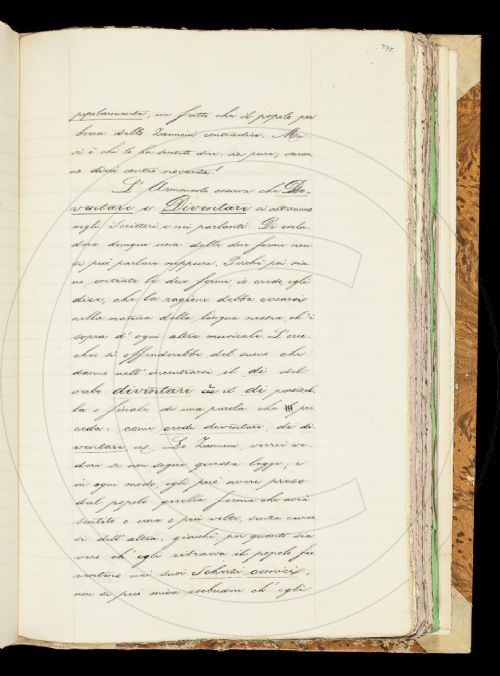 popolarmente, un fatto che il popolo per
bocca dello Zannoni contradice. Ma
vi è chi lo ha sentito dire, sia pure, saran
no dieci contro novanta!
L'Annunzio osserva che Do-
ventare e Diventare si alternano
negli Scrittori e nei parlanti. Di esclu-
dere dunque una delle due forme non
si può parlare neppure. Perché poi sia
no entrate le due forme, io credo, egli
dice, che la ragione debba cercarsi
nella natura della lingua nostra ch'è
sopra d'ogni altra musicale. L'orec-
chio si offenderebbe del suono che
danno nell'incontrarsi il di del
verbo diventare con il di
la o finale di una parola che pre
ceda: come credo diventare, di di-
ventare, ec. Lo Zannoni, vorrei ve-
dere se non segue questa legge; e
in ogni modo, egli può avere preso
dal popolo quella forma che avrà
sentito o una o più volte, senza curar
si dell'altra; giacché, per quanto sia
vero ch'egli ritraeva il popolo fio
rentino nei suoi Scherzi comici,
non si può mica escludere ch'egli